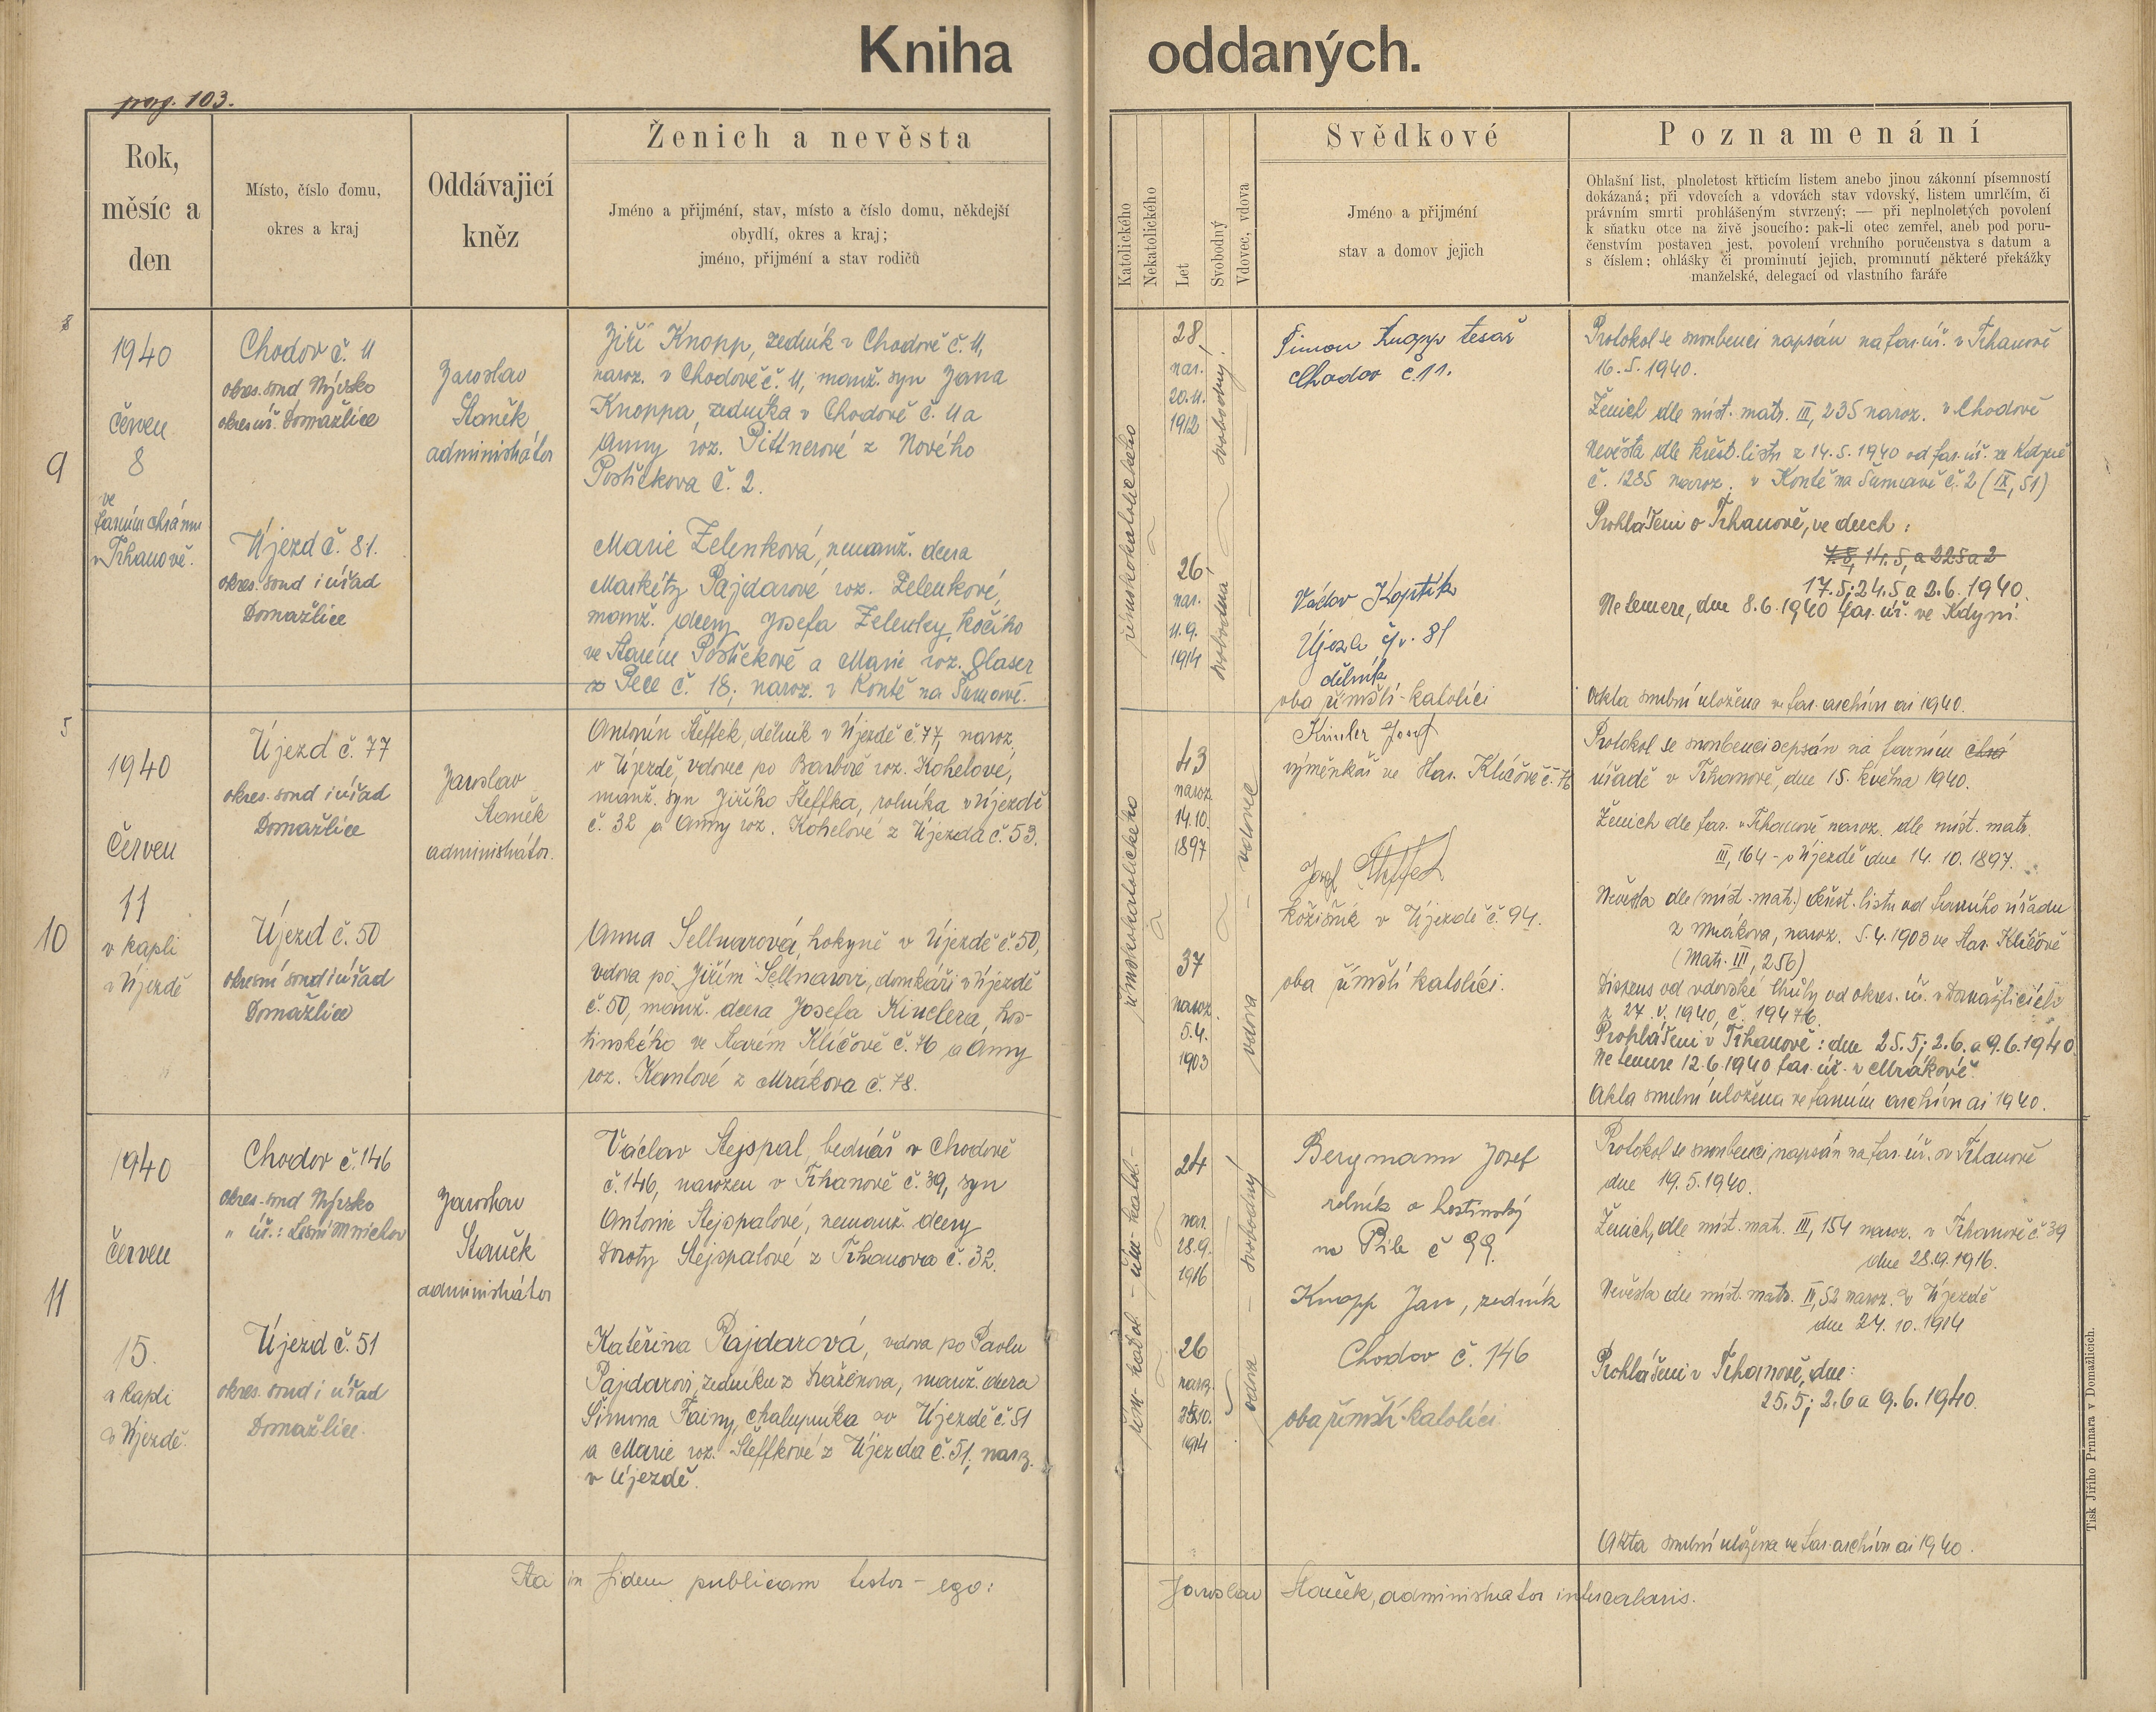 Kniha oddaných.
pag. 103.
Rok,
měsíc a
den
Místo, číslo domu,
okres a kraj
Oddávající
kněz
Ženich a nevěsta
Jméno a přijmění, stav, místo a číslo domu, někdejší
obydlí, okres a kraj;
jméno, přijmění a stav rodičů
Katolického
Nekatolického
Let
Svobodný
Vdovec, vdova
Svědkové
Jméno a přijmění
stav a domov jejich
Poznamenání
Ohlašní list, plnoletost křticím listem anebo jinou zákonní písemností
dokázaná; při vdovcích a vdovách stav vdovský, listem umrlčím, či
právním smrti prohlášeným stvrzený; — při neplnoletých povolení
k sňatku otce na živě jsoucího: pak-li otec zemřel, aneb pod poru-
čenstvím postaven jest, povolení vrchního poručenstva s datum a
s číslem; ohlášky či prominutí jejich, prominutí některé překážky
manželské, delegací od vlastního faráře
9
1940
červen
8
ve
farním chrámu
v Trhanově.
Chodov č. 11
okres. soud Nýrsko
okres. úř. Domažlice
Újezd č. 81.
okres. soud i úřad
Domažlice
Jaroslav
Staněk
administrátor
Jiří Knopp, zedník v Chodově č. 11,
naroz. v Chodově č. 11, manž. syn Jana
Knoppa, zedníka v Chodově č. 11 a
Anny roz. Pittnerové z Nového
Postřekova č. 2.
Marie Zelenková, nemanž. dcera
Markéty Pajdarové roz. Zelenkové,
manž. dcery Josefa Zelenky, kočího
ve Starém Postřekově a Marie roz. Glaser
z Pece č. 18; naroz. v Koutě na Šumavě.
římskokatolického
28,
nar.
20.11.
1912
svobodný
26,
nar.
11.9.
1914
svobodná
Šimon Knopp tesař
Chodov č. 11.
Václav Koptík
Újezd čp. 81
dělník
oba římští-katolíci
Protokol se snoubenci napsán na far. úř. v Trhanově
16. 5. 1940.
Ženich dle míst. matr. III, 235 naroz. v Chodově
Nevěsta dle křest. listu z 14. 5. 1940 od far. úř. ze Kdyně
č. 1285 naroz. v Koutě na Šumavě č. 2 (IX, 51)
Prohlášeni v Trhanově, ve dnech:
17. 5; 24. 5 a 2. 6. 1940.
Ne temere, dne 8. 6. 1940 far. úř. ve Kdyni.
Akta snubní uložena ve far. archivu ai 1940.
10
1940
Červen
11
v kapli
v Újezdě
Újezd č. 77
okres. soud i úřad
Domažlice
Újezd č. 50
okresní soud i úřad
Domažlice
Jaroslav
Staněk
administrátor.
Antonín Šteffek, dělník v Újezdě č. 77, naroz.
v Újezdě, vdovec po Barboře roz. Kohelové,
manž. syn Jiřího Šteffka, rolníka v Újezdě
č. 32 a Anny roz. Kohelové z Újezda č. 53.
Anna Sellnarová, hokyně v Újezdě č. 50,
vdova po Jiřím Sellnarovi, domkáři v Újezdě
č. 50, manž. dcera Josefa Kinclera, hos-
tinského ve Starém Klíčově č. 76 a Anny
roz. Kantové z Mrákova č. 78.
římskokatolického
43
naroz.
14.10.
1897
vdovec
37
naroz.
5.4.
1903
vdova
Kincler Josef
výměnkář ve Star. Klíčově č. 76
Josef Šteffek
kožišník v Újezdě č. 94.
oba římští katolíci.
Protokol se snoubenci sepsán na farním chrá
úřadě v Trhanově, dne 15. května 1940.
Ženich dle far. v Trhanově naroz. dle míst. matr.
III, 164 - v Újezdě dne 14. 10. 1897.
Nevěsta dle (míst. matr.) křest. listu od farního úřadu
z Mrákova, naroz. 5. 4. 1903 ve Star. Klíčově
(Matr. III, 256)
Dispens od vdovské lhůty od okres. úř. v Domažlicích
z 27. V. 1940, č. 19476.
Prohlášeni v Trhanově: dne 25. 5; 2. 6. a 9. 6. 1940.
Ne temere 12. 6. 1940 far. úř. v Mrákově.
Akta snubní uložena ve farním archivu ai 1940.
11
1940
červen
15.
v kapli
v Újezdě.
Chodov č. 146
okres. soud Nýrsko
" úř.: Lesní Mnichov
Újezd č. 51
okres. soud i úřad
Domažlice.
Jaroslav
Staněk
administrátor
Václav Stejspal, bednář v Chodově
č. 146, narozen v Trhanově č. 39, syn
Antonie Stejspalové, nemanž. dcery
Doroty Stejspalové z Trhanova č. 32.
Kateřina Pajdarová, vdova po Pavlu
Pajdarovi, zedníku z Draženova, manž. dcera
Šimona Fainy, chalupníka v Újezdě č. 51
a Marie roz. Šteffkové z Újezda č. 51; naroz.
v Újezdě.
řím-katol - řím-katol.-
24
nar.
28.9.
1916
svobodný
26
naroz.
1914
vdova
Bergmann Josef
rolník a hostinský
na Pile č 99.
Knopp Jan, zedník
Chodov č. 146
oba římští-katolíci
Protokol se snoubenci, napsán na far. úř. v Trhanově
dne 19. 5. 1940.
Ženich, dle míst. matr. III, 154 naroz. v Trhanově č. 39
dne 28. 9. 1916.
Nevěsta dle míst. matr. IV, 52 naroz. v Újezdě
dne 24. 10. 1914
Prohlášeni v Trhanově, dne:
25. 5; 2. 6 a 9. 6. 1940.
Akta snubní uložena ve far. archivu ai 1940.
Ita in fidem publicam testor - ego: Jaroslav Staněk, administrator intercalaris.
Tisk Jiřího Prunara v Domažlicích.